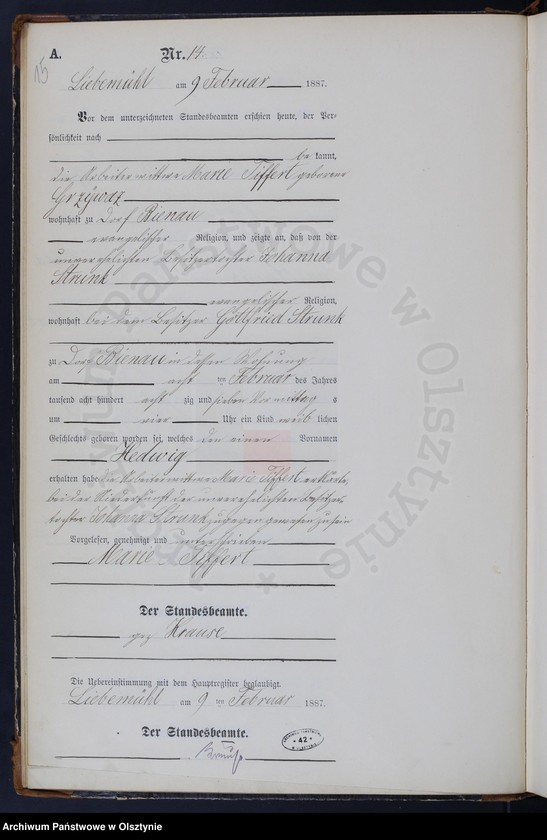 15
A. Nr. 14
Liebemühl am 9 Februar 1887.
Vor dem unterzeichneten Standesbeamten erschien heute, der Per-
sönlichkeit nach
be kannt,
die Arbeiterwittwe Marie Tiffert geborene
Grzywaz
wohnhaft zu Dorf Bienau
evangelischer Religion, und zeigte an, daß von der
unverehelichten Besitzertochter Johanna
Strunk
evangelischer Religion,
wohnhaft bei dem Besitzer Gottfried Strunk
zu Dorf Bienau in dessen Wohnung
am acht ten Februar des Jahres
tausend acht hundert acht zig und sieben Vormittag s
um vier Uhr ein Kind weib lichen
Geschlechts geboren worden sei, welches den einen Vornamen
Hedwig
erhalten habe die Arbeiterwittwe Marie Tiffert erklärte,
bei der Niederkunft der unverehelichten Besitzer-
tochter Johanna Strunk zugegen gewesen zu sein
Vorgelesen, genehmigt und unterschrieben
Marie Tiffert
Der Standesbeamte.
gez Krause
Die Uebereinstimmung mit dem Hauptregister beglaubigt.
Liebemühl am 9 ten Februar 1887.
Der Standesbeamte.
Krause
* 42 *
Archiwum Państwowe w Olsztynie
Archiwum Państwowe w Olsztynie